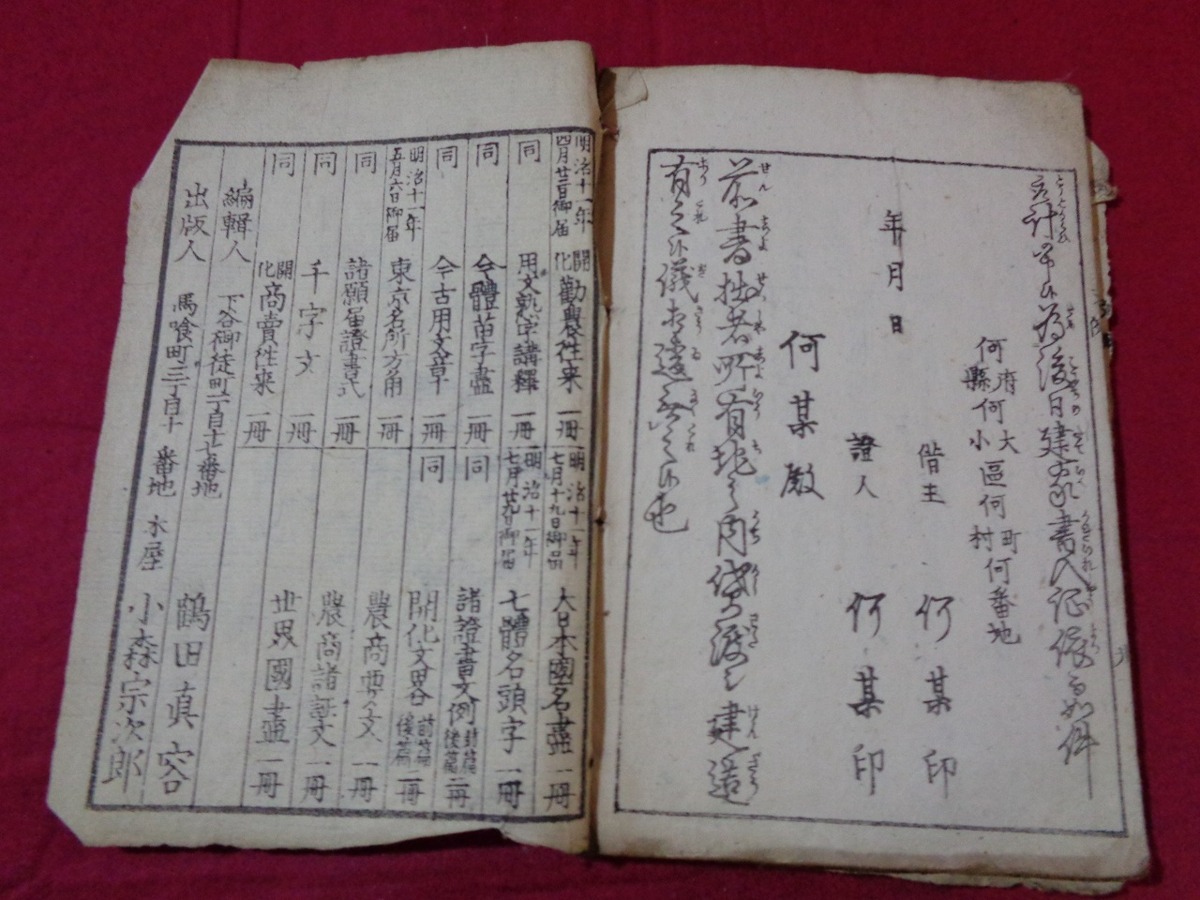 計
為後日建家書入証依而如件
何府縣何大小區何町村何番地
借主 何某印
證人 何某印
年月日
何某殿
前書拙者所有地之内貸渡シ建造
有之候儀相違無之候也
明治十一年四月廿二日御届 開化勸農往来 一冊
同 用文熟字講釋 一冊
同 今體苗字盡 一冊
同 今古用文章 一冊
明治十一年五月六日御届 東京名所方角 一冊
同 諸願届證書式 一冊
同 千字文 一冊
同 開化商賣往来 一冊
明治十一年七月十九日御届 大日本國名盡 一冊
明治十一年七月廿九日御届 七體名頭字 一冊
同 諸證書文例 前篇後篇 二冊
同 開化文畧 前篇後篇 二冊
農商要文 一冊
農商諸証文 一冊
世界國盡 一冊
編輯人 下谷御徒町二丁目十七番地 鶴田真容
出版人 馬喰町三丁目十番地 木屋 小森宗次郎